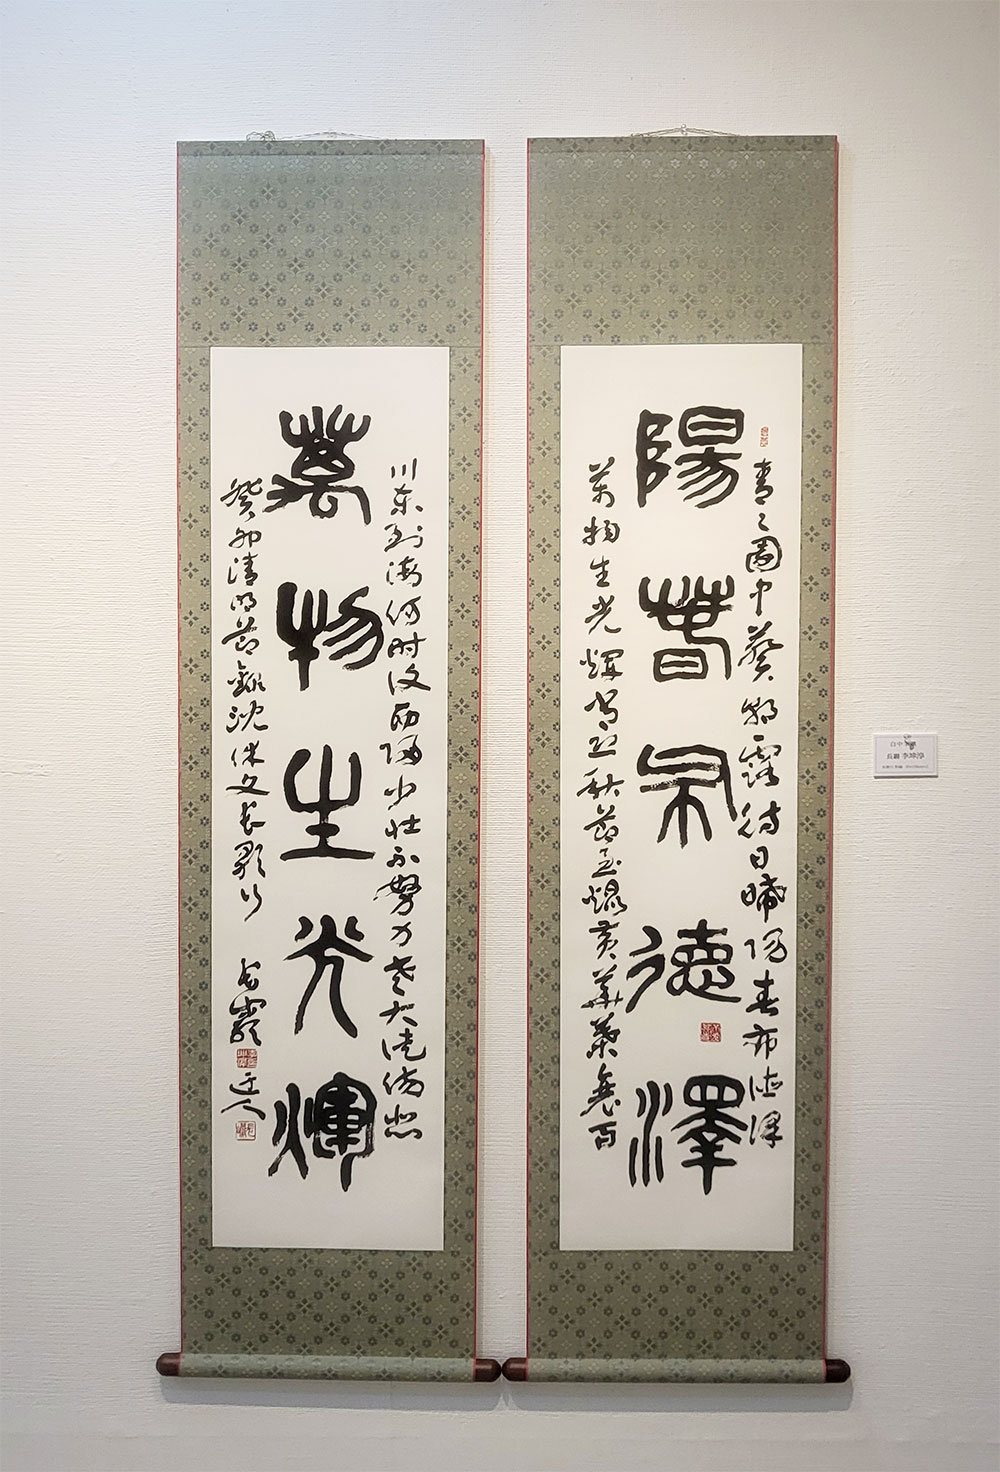 青々園中葵朝露待日晞陽春布德澤
陽春布德澤
萬物生光輝常恐秋節至焜黃華葉衰百
川東到海何時復西歸少壯不努力老大徒傷悲
萬物生光輝
癸卯清明節錄沈休文長歌行